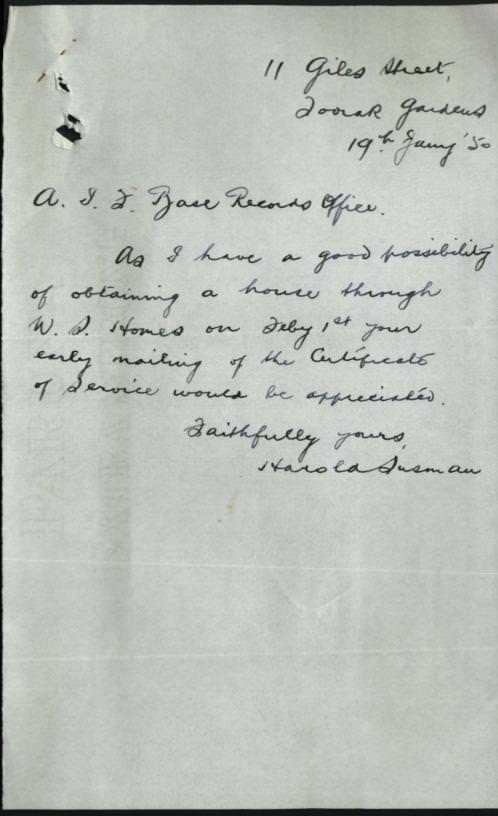 11 Giles Street,
Toorak Gardens
19th Jany '50
A. I. F. Base Records Office.
As I have a good possibility
of obtaining a house through
W. S. Homes on Feby 1st your
early mailing of the Certificate
of Service would be appreciated.
Faithfully yours,
Harold Susman